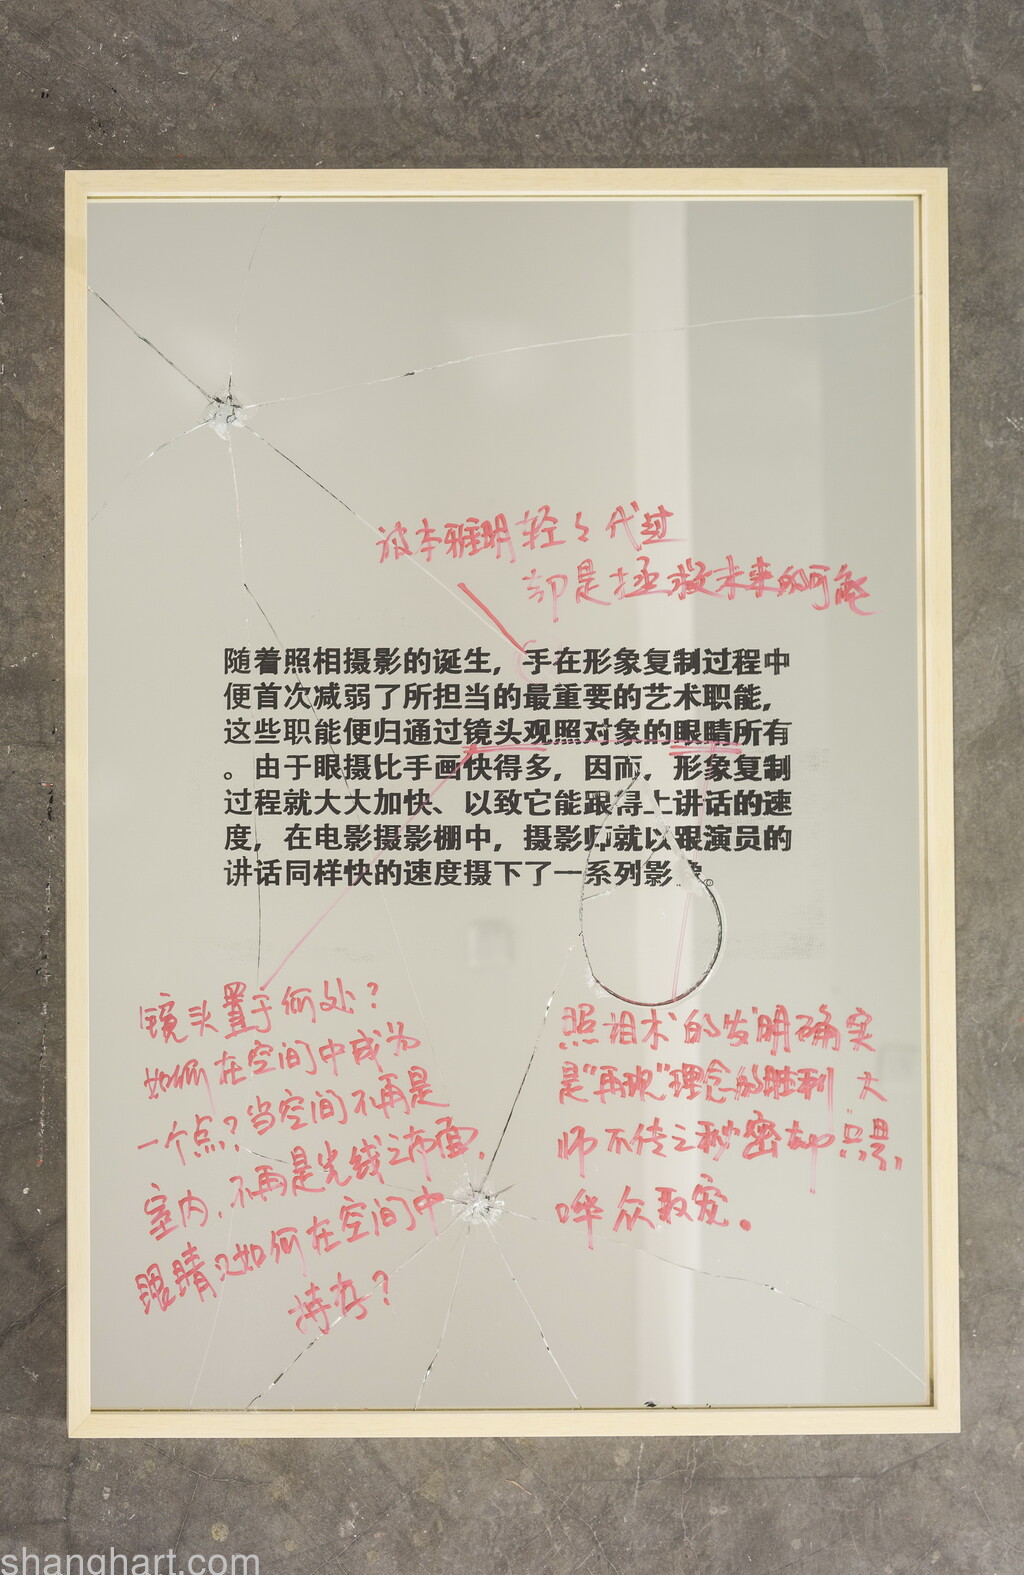 被本雅明轻々代过
却是拯救未来的可能
随着照相摄影的诞生，手在形象复制过程中
便首次减弱了所担当的最重要的艺术职能，
这些职能便归通过镜头观照对象的眼睛所有
。由于眼摄比手画快得多，因而，形象复制
过程就大大加快、以致它能跟得上讲话的速
度，在电影摄影棚中，摄影师就以跟演员的
讲话同样快的速度摄下了一系列影象。
镜头置于何处？
如何在空间中成为
一个点？当空间不再是
室内，不再是光线之布面，
眼睛又如何在空间中
持存？
照相术的发明确实
是“再现”理念的胜利 大
师不传之秘密却只是
哗众取宠。
shanghart.com